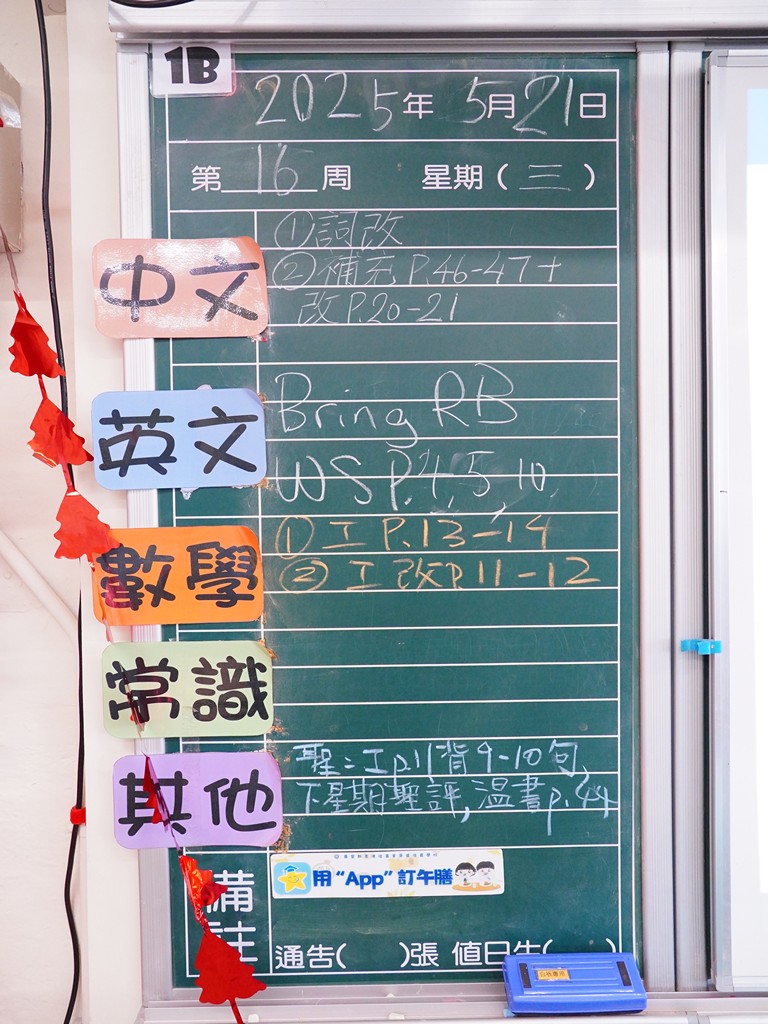 1B
2025年 5月21日
第 16 周 星期(三)
中文
①詞改
②補充P.46-47+
改P.20-21
英文
Bring RB
WS P.4, 5, 10,
數學
①工 P.13-14
②工 改P.11-12
常識
其他
聖:工p.11背9-10句,
下星期聖評,溫書p.44
備註
用“App”訂午膳
通告( )張 值日生( )